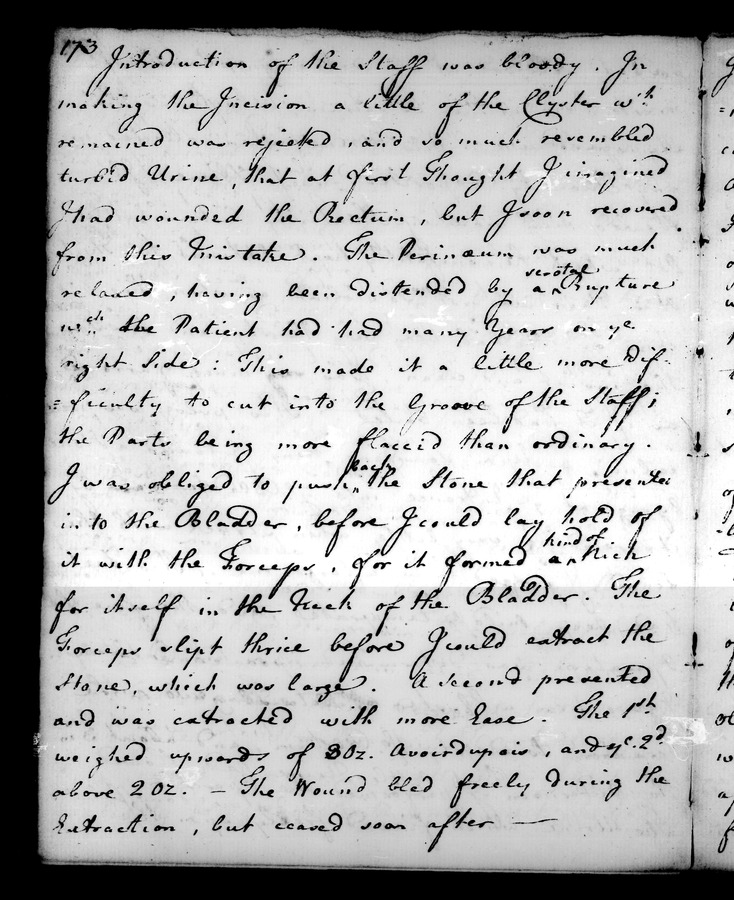 173
Introduction of the Staff was bloody. In
making the Incision a little of the Clyster wch.
remained was rejected, and so much resembled
turbid Urine, that at first Thought I imagined
I had wounded the Rectum, but I soon recovered
from this Mistake. The Perinæum was much
relaxed, having been distended by a ^scrotal Rupture
wch. the Patient had had many Years on ye
right Side: This made it a little more Dif-
=ficulty to cut into the Groove of the Staff;
the Parts being more flaccid than ordinary.
I was obliged to push ^back the Stone that presented
in to the Bladder, before I could lay hold of
it with the Forceps, for it formed a ^kind of Nich
for itself in the Neck of the Bladder. The
Forceps slipt thrice before I could extract the
Stone, which was large. A second presented
and was extracted with more Ease. The 1st
weighed upwards of 3 Oz. Avoirdupois, and ye. 2d.
above 2 oz. — The Wound bled freely during the
Extraction, but ceased soon after —